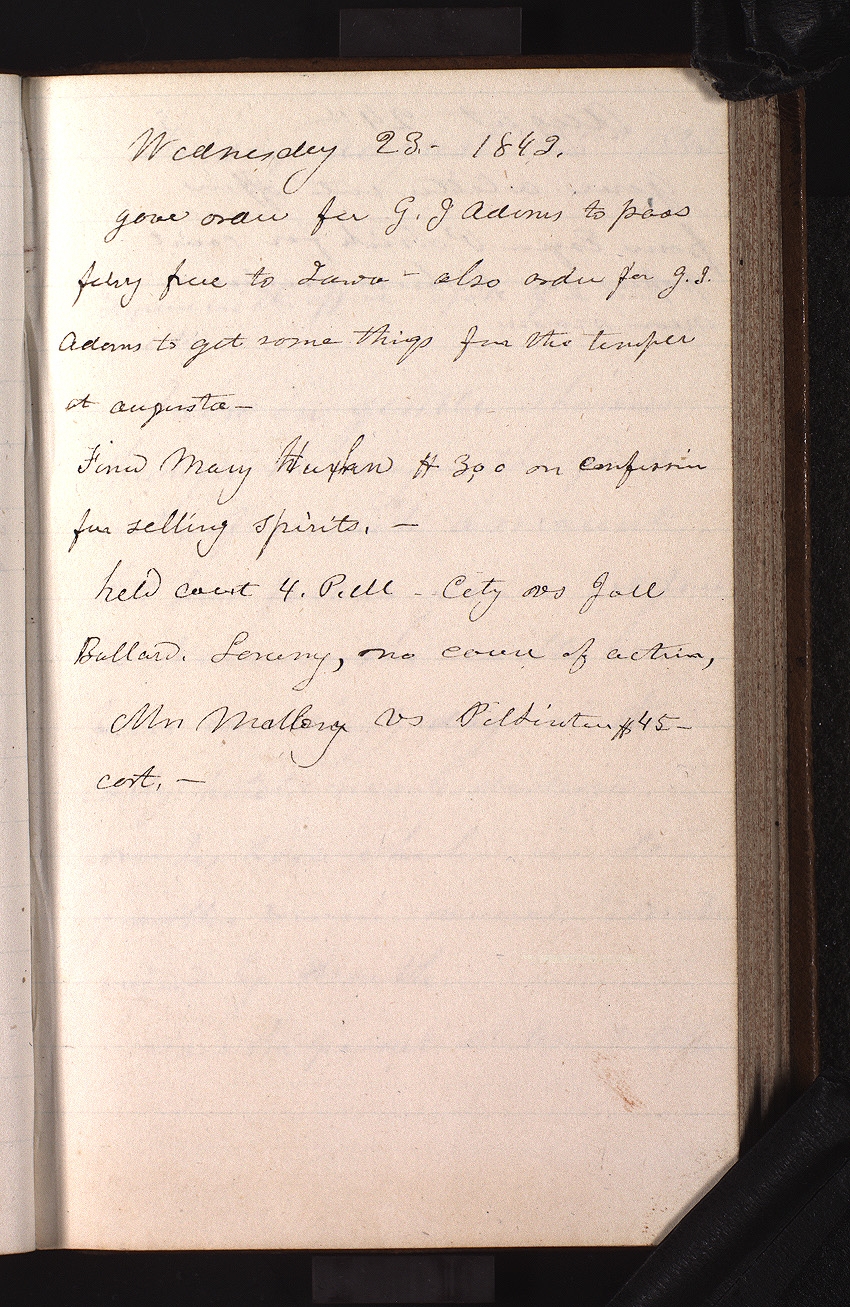 Wednesday 23.- 1842.
gave order for G. J Adams to pass
ferry free to Iawa - also order for G. J.
Adams to get some things for the temper
at augusta-
Fined Mary $ 3,00 on confession
for selling spirits. -
held court 4. P.M - City vs Joel
Bullard. no cause of action,
Mrs Mallery vs $45-
cost. -